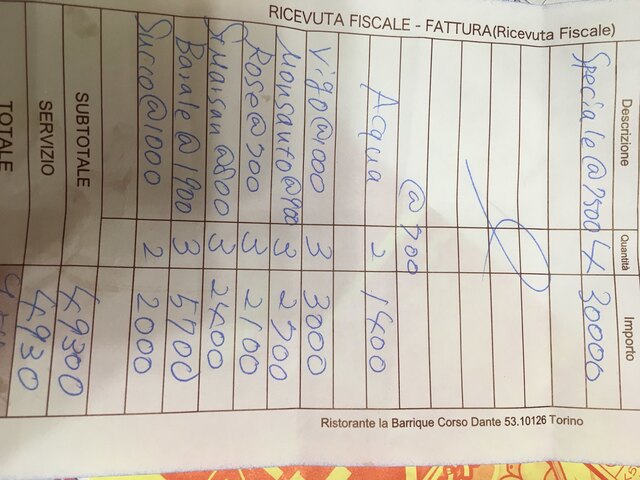 RICEVUTA FISCALE - FATTURA(Ricevuta Fiscale)
Descrizione Quantità Importo
Speciale @7500 4 30000
@700
Acqua 2 1400
Vigo @1000 3 3000
Monsanto @900 3 2700
Rose @700 3 2100
@800 3 2400
Barale @1900 3 5700
Succo @1000 2 2000
SUBTOTALE 49300
SERVIZIO 4930
TOTALE
Ristorante la Barrique Corso Dante 53.10126 Torino